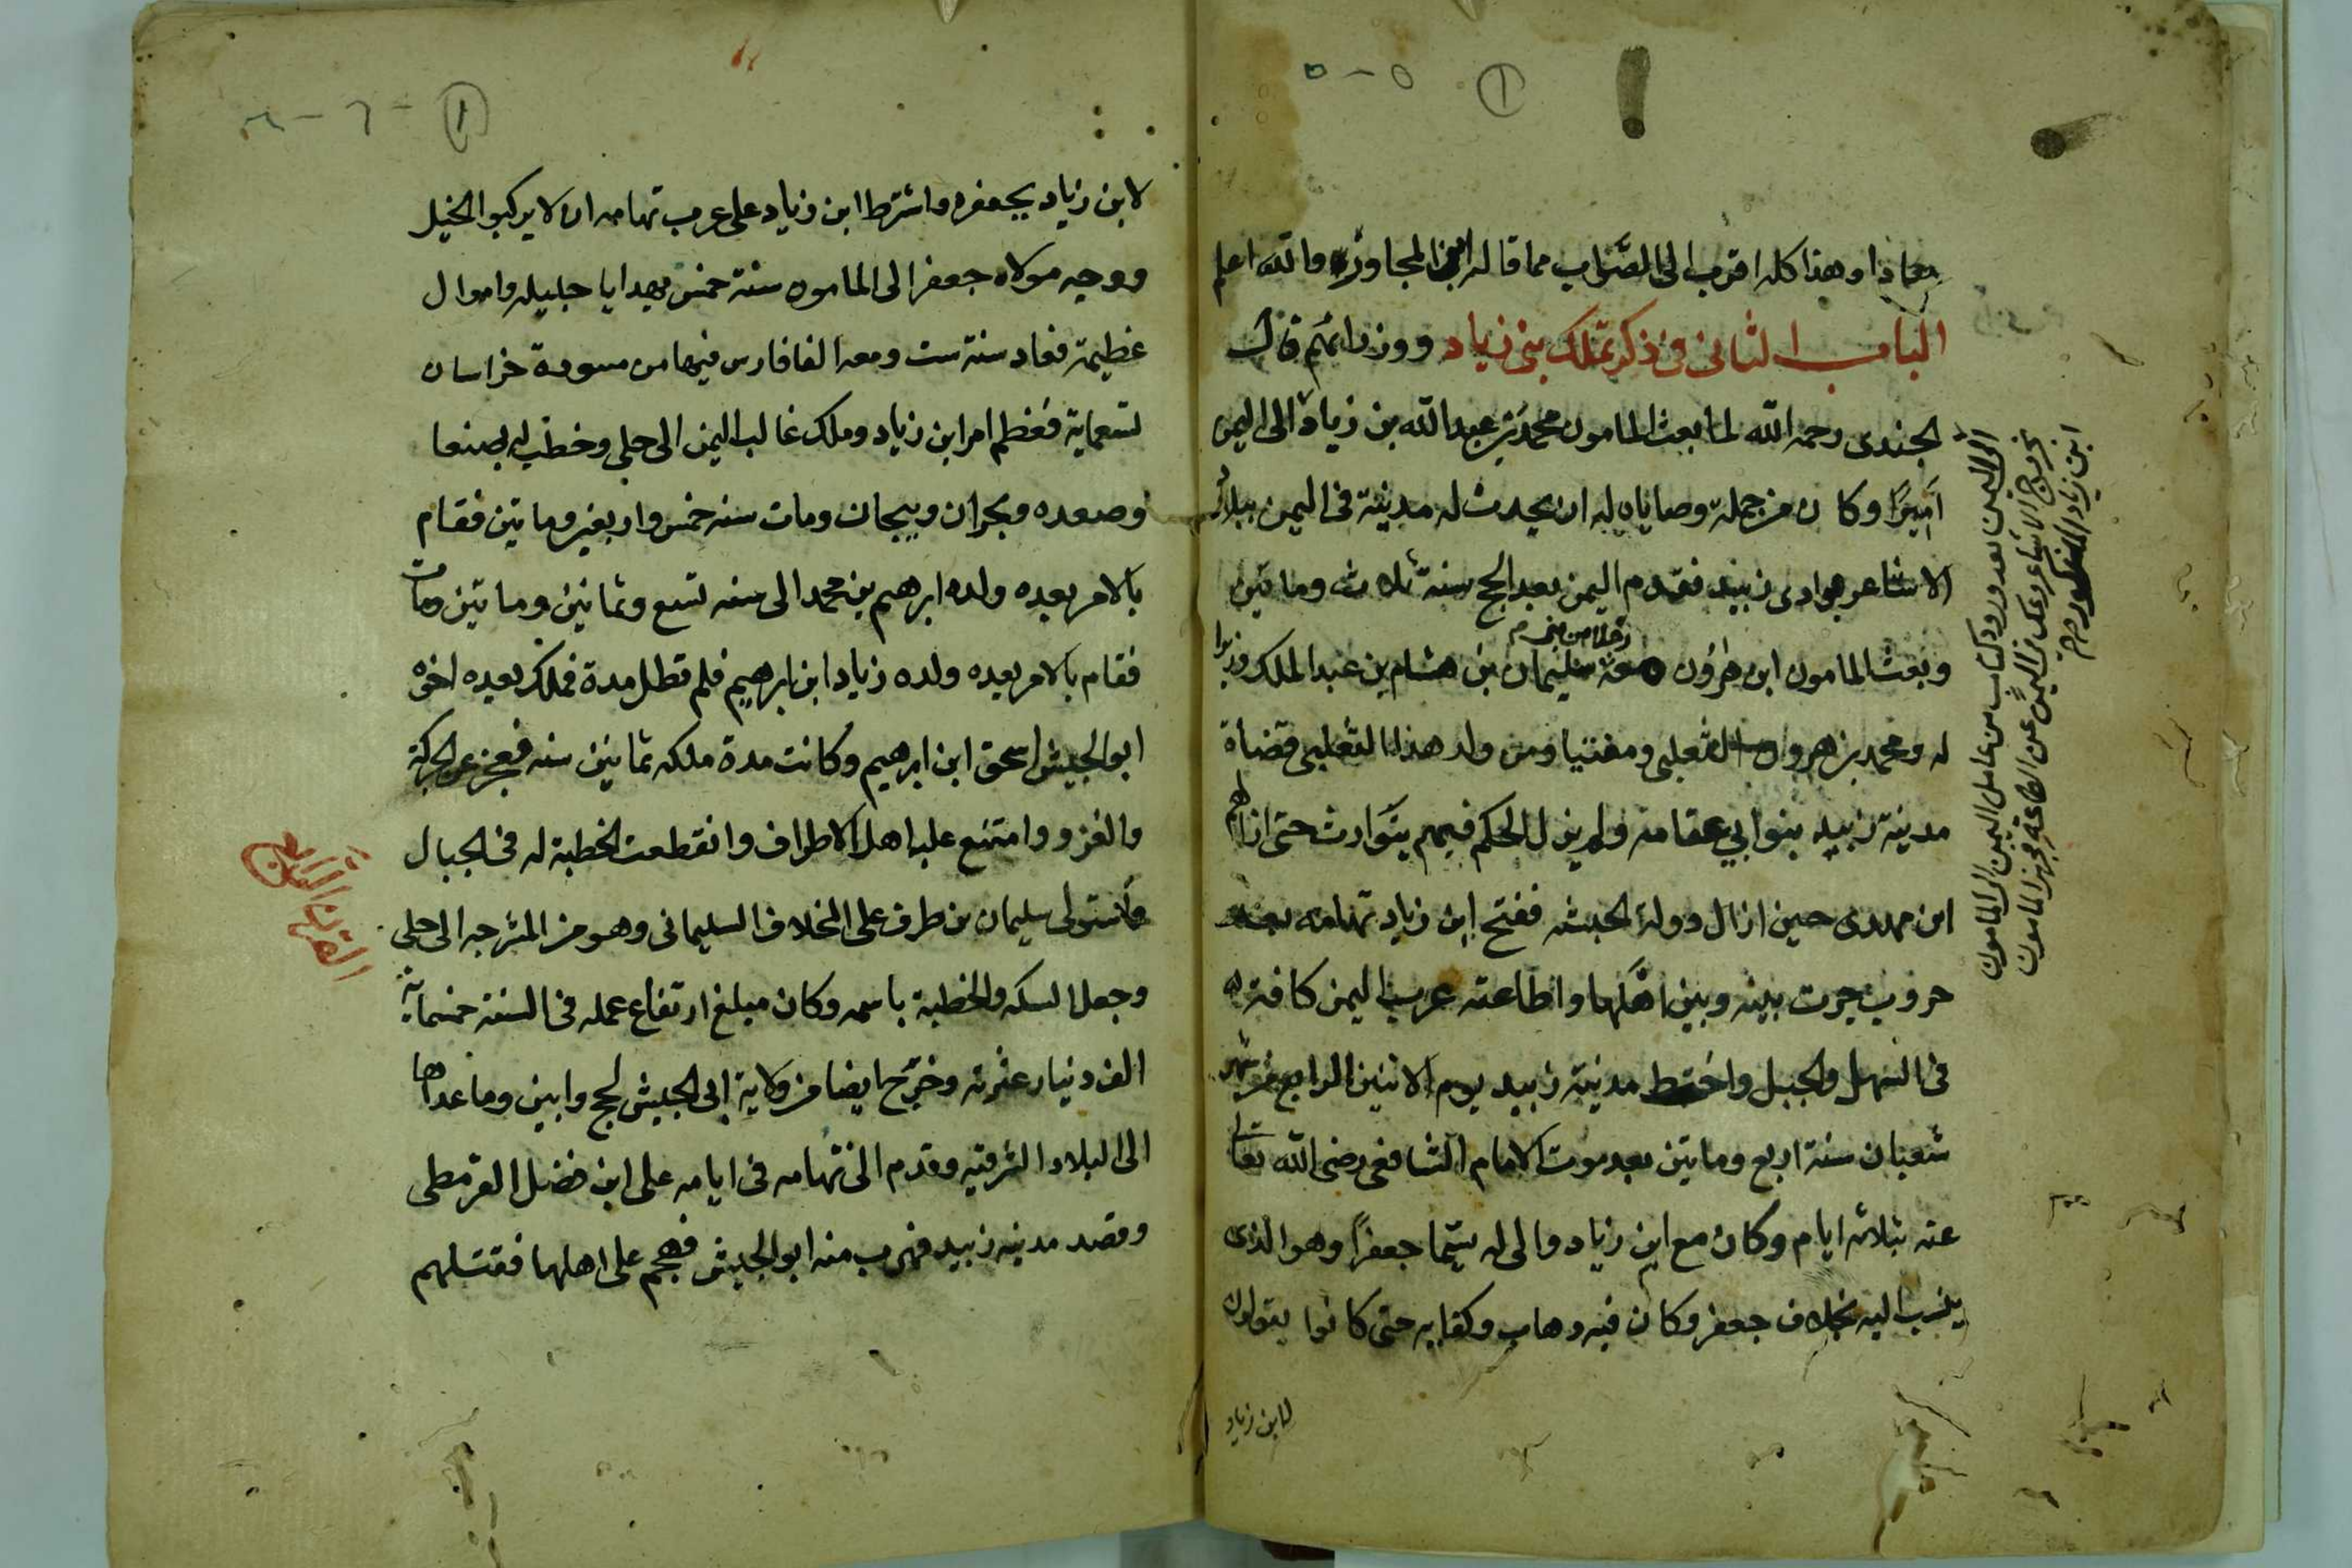 معاذا وهذا كله اقرب الى الصواب مما قاله ابن المجاور والله اعلم
الباب الثانى فى ذكر تملك بنى زياد ووزرائهم قال
الجندى رحمه الله لما بعث المامون محمد بن عبد الله بن زياد الى اليمن
اميرًا وكان من جملة وصاياه له ان يحدث له مدينة فى اليمن ببلاد
الاشاعر بوادى زبيد فقدم اليمن بعد الحج سنة ثلاث وماتين
وبعث المامون ابن هرون معه سليمان بن هشام بن عبد الملك وزيرا
له ومحمد بن هرون التغلبى ومفتيا ومن ولد هذا التغلبى قضاة
مدينة زبيد بنو ابي عقامه ولم يزل الحكم فيهم يتوارث حتى ازالهم
ابن مهدى حين ازال دولة الحبشه ففتح ابن زياد تهامه بعد
حروب جرت بينه وبين اهلها واطاعته عرب اليمن كافة
فى السهل والجبل واختط مدينة زبيد يوم الاثنين الرابع من شهر
شعبان سنة اربع وماتين بعد موت الامام الشافعى رضى الله تعالى
عنه بثلاثه ايام وكان مع ابن زياد والى له يسما جعفرًا وهو الذى
ينسب اليه مخلاف جعفر وكان فيه دهاء وكفايه حتى كانوا يقولون
لابن زياد
الى اليمن بعد ورود كتاب من عامل اليمن الى المامون
بخروج الاشاعر وعك فى اليمن عن الطاعة فجهز المامون
ابن زياد المذكور
لابن زياد بجعفره واشترط ابن زياد على عرب تهامه ان لا يركبوا الخيل
ووجه مولاه جعفر الى المامون سنة خمس بهدايا جليله واموال
عظيمة فعاد سنة ست ومعه الفا فارس فيها من مسودة خراسان
تسعماية فعظم امر ابن زياد وملك غالب اليمن الى حلى وخطب له بصنعا
وصعده ونجران وبيحان ومات سنه خمس واربعين وماتين فقام
بالامر بعده ولده ابرهيم بن محمد الى سنه تسع وثمانين وماتين ومات
فقام بالامر بعده ولده زياد ابن ابرهيم فلم تطل مدة فملك بعده اخوه
ابو الجيش اسحق ابن ابرهيم وكانت مدة ملكه ثمانين سنه فعجز عن الحركة
والغزو وامتنع عليه اهل الاطراف وانقطعت الخطبة له فى الجبال
فاستولى سليمان بن طرف على المخلاف السليمانى وهو من الشرجه الى حلى
وجعل السكه والخطبة باسمه وكان مبلغ ارتفاع عمله فى السنة خمسماية
الف دنيار عثريه وخرج ايضا من ولاية ابى الجيش لحج وابين وما عداها
الى البلاد الشرقيه وقدم الى تهامه فى ايامه على ابن فضل القرمطى
وقصد مدينه زبيد فهرب منه ابو الجيش فهجم على اهلها فقتلهم